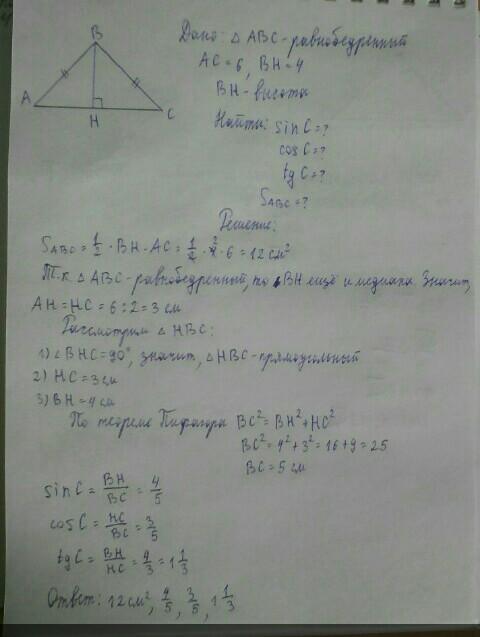 B
A
C
H
Дано: △ABC-равнобедренный
AC=6, BH=4
BH-высота
Найти: sinC=?
cosC=?
tgC=?
S_ABC=?
Решение:
S_ABC = 1/2 · BH · AC = 1/2 · 4 · 6 = 12 см²
Т.к △ABC-равнобедренный, то BH ещё и медиана. Значит,
AH=HC=6:2=3 см
Рассмотрим △HBC:
1) ∠BHC=90°, значит, △HBC-прямоугольный
2) HC=3 см
3) BH=4 см
По теореме Пифагора BC²=BH²+HC²
BC²=4²+3²=16+9=25
BC=5 см
sinC = BH/BC = 4/5
cosC = HC/BC = 3/5
tgC = BH/HC = 4/3 = 1 1/3
Ответ: 12 см², 4/5, 3/5, 1 1/3